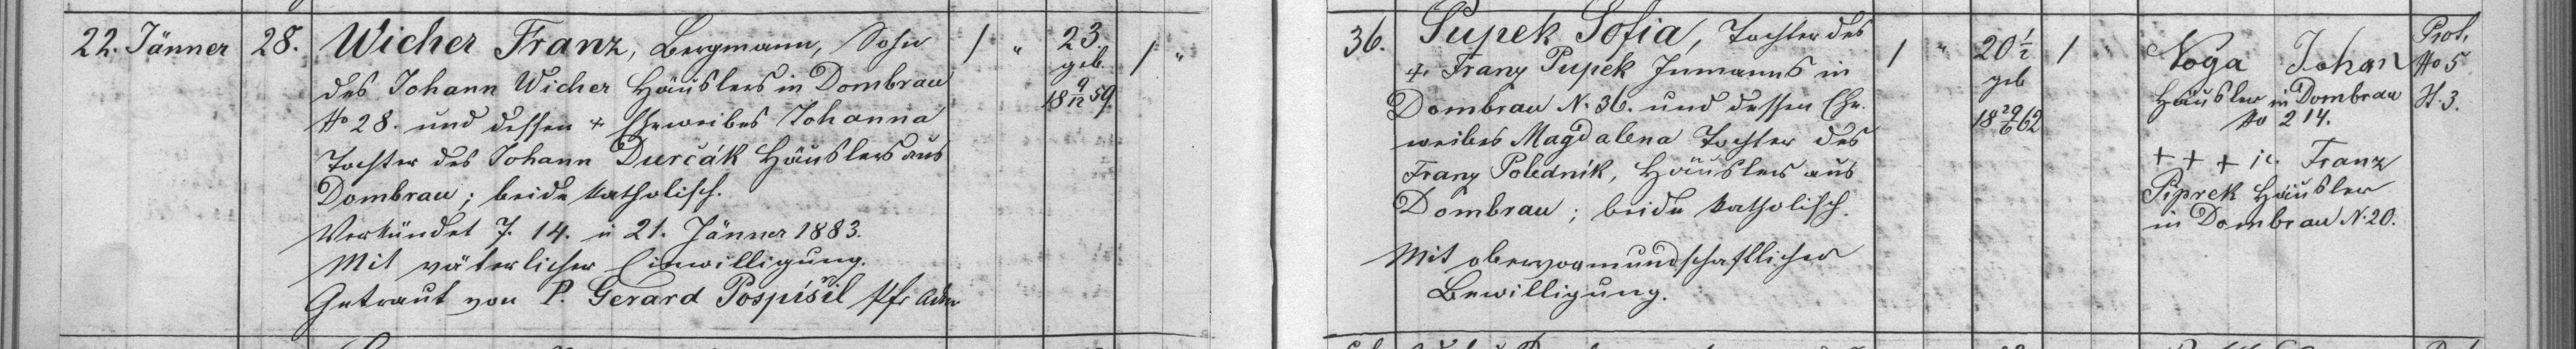 22. Jänner
28.
Wicher Franz, Bergmann, Sohn
des Johann Wicher Häuslers in Dombrau
No 28. und dessen + Eheweibes Johanna
Tochter des Johann Durčák Häuslers aus
Dombrau; beide katholisch.
Verkündet 7. 14. u 21. Jänner 1883.
Mit väterlicher Einwilligung.
Getraut von P. Gerard Pospíšil Pfr Adm
1 "
23
geb.
18 9/12 59.
1 "
36.
Pupek Sofia, Tochter des
+. Franz Pupek Inmanns in
Dombrau N. 36. und dessen Ehe-
weibes Magdalena Tochter des
Franz Polednik, Häuslers aus
Dombrau; beide katholisch.
Mit obervormundschaftlicher
Bewilligung.
1 "
20 1/2
geb
18 29/6 62
1 "
Noga Johan
Häusler in Dombrau
No 214.
+ + + Franz
Piprek Häusler
in Dombrau N. 20.
Prot.
No 5
H. 3.